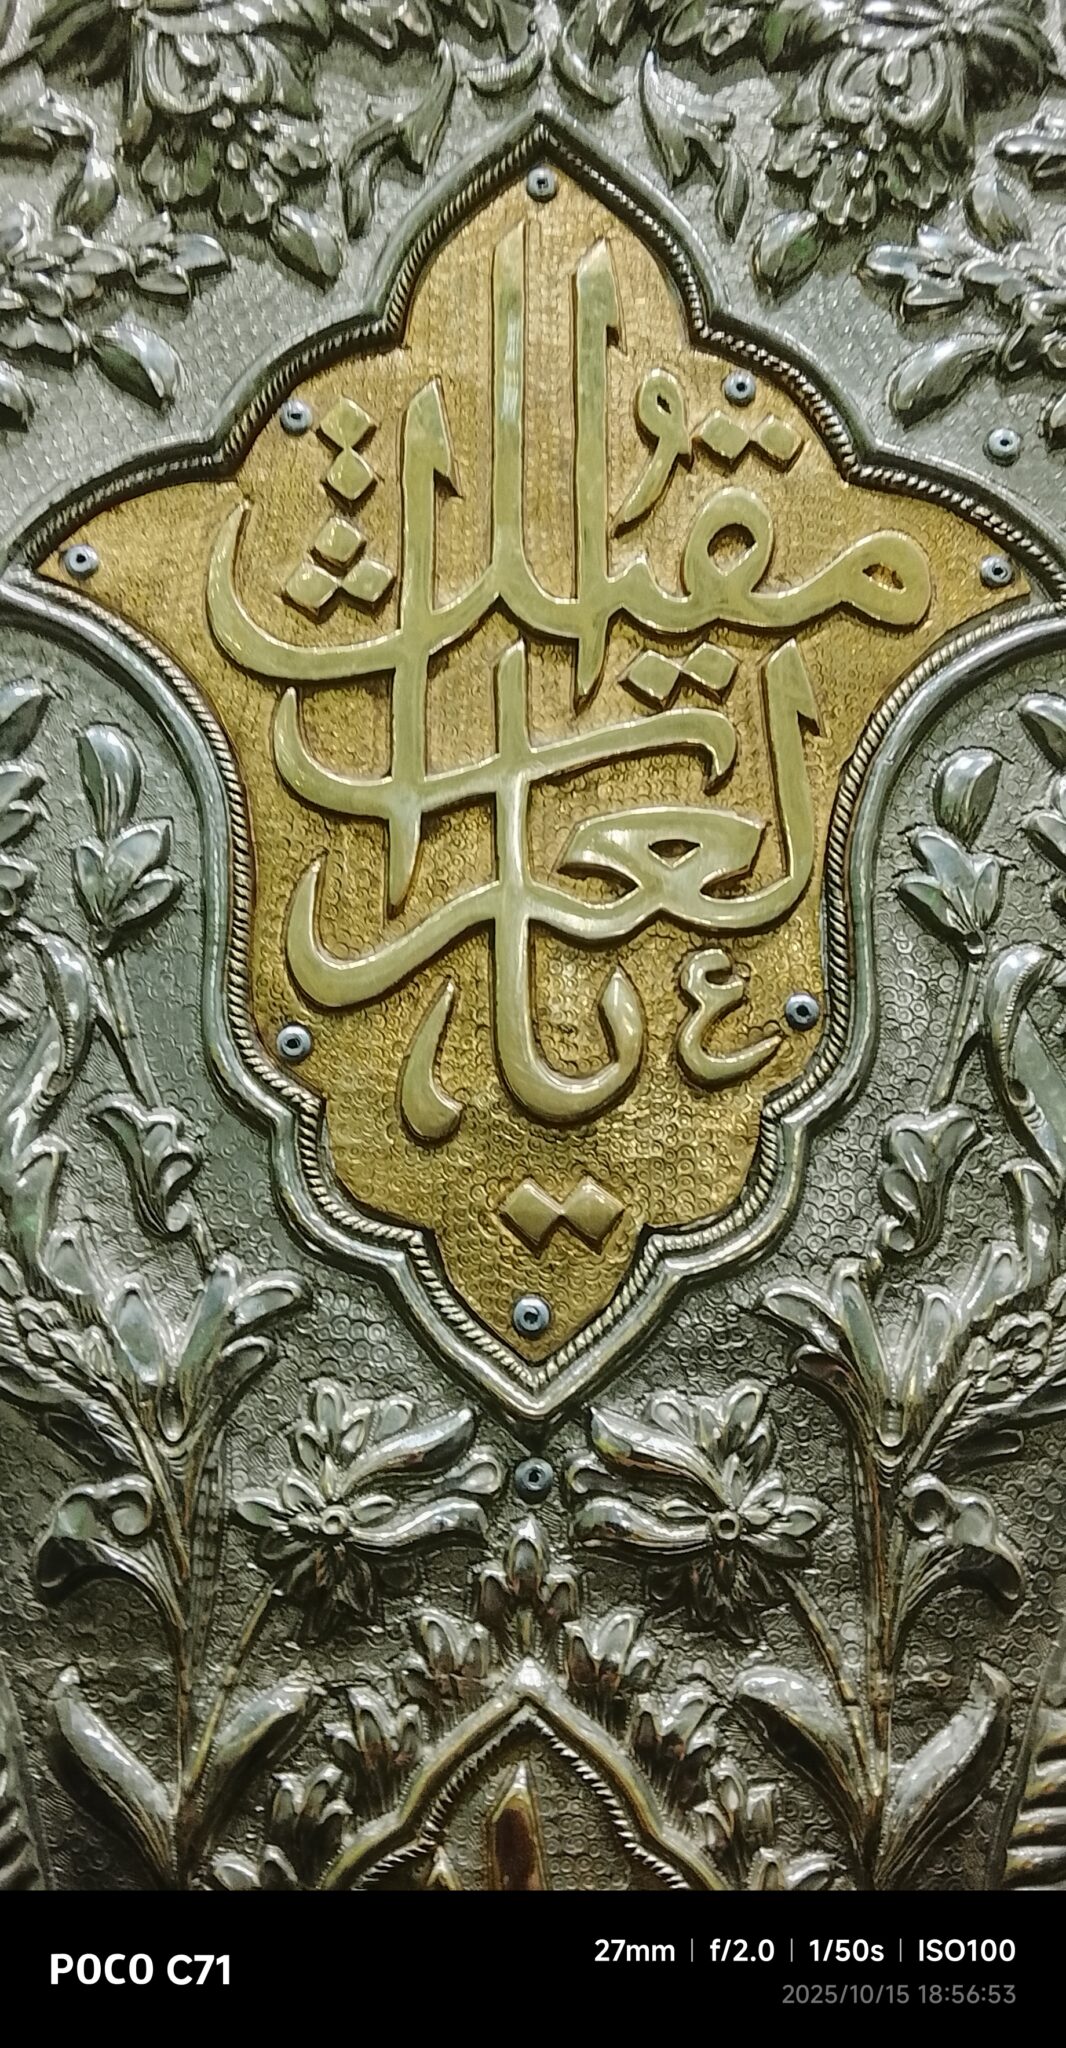 يا مقيل العثرات
POCO C71
27mm | f/2.0 | 1/50s | ISO100
2025/10/15 18:56:53